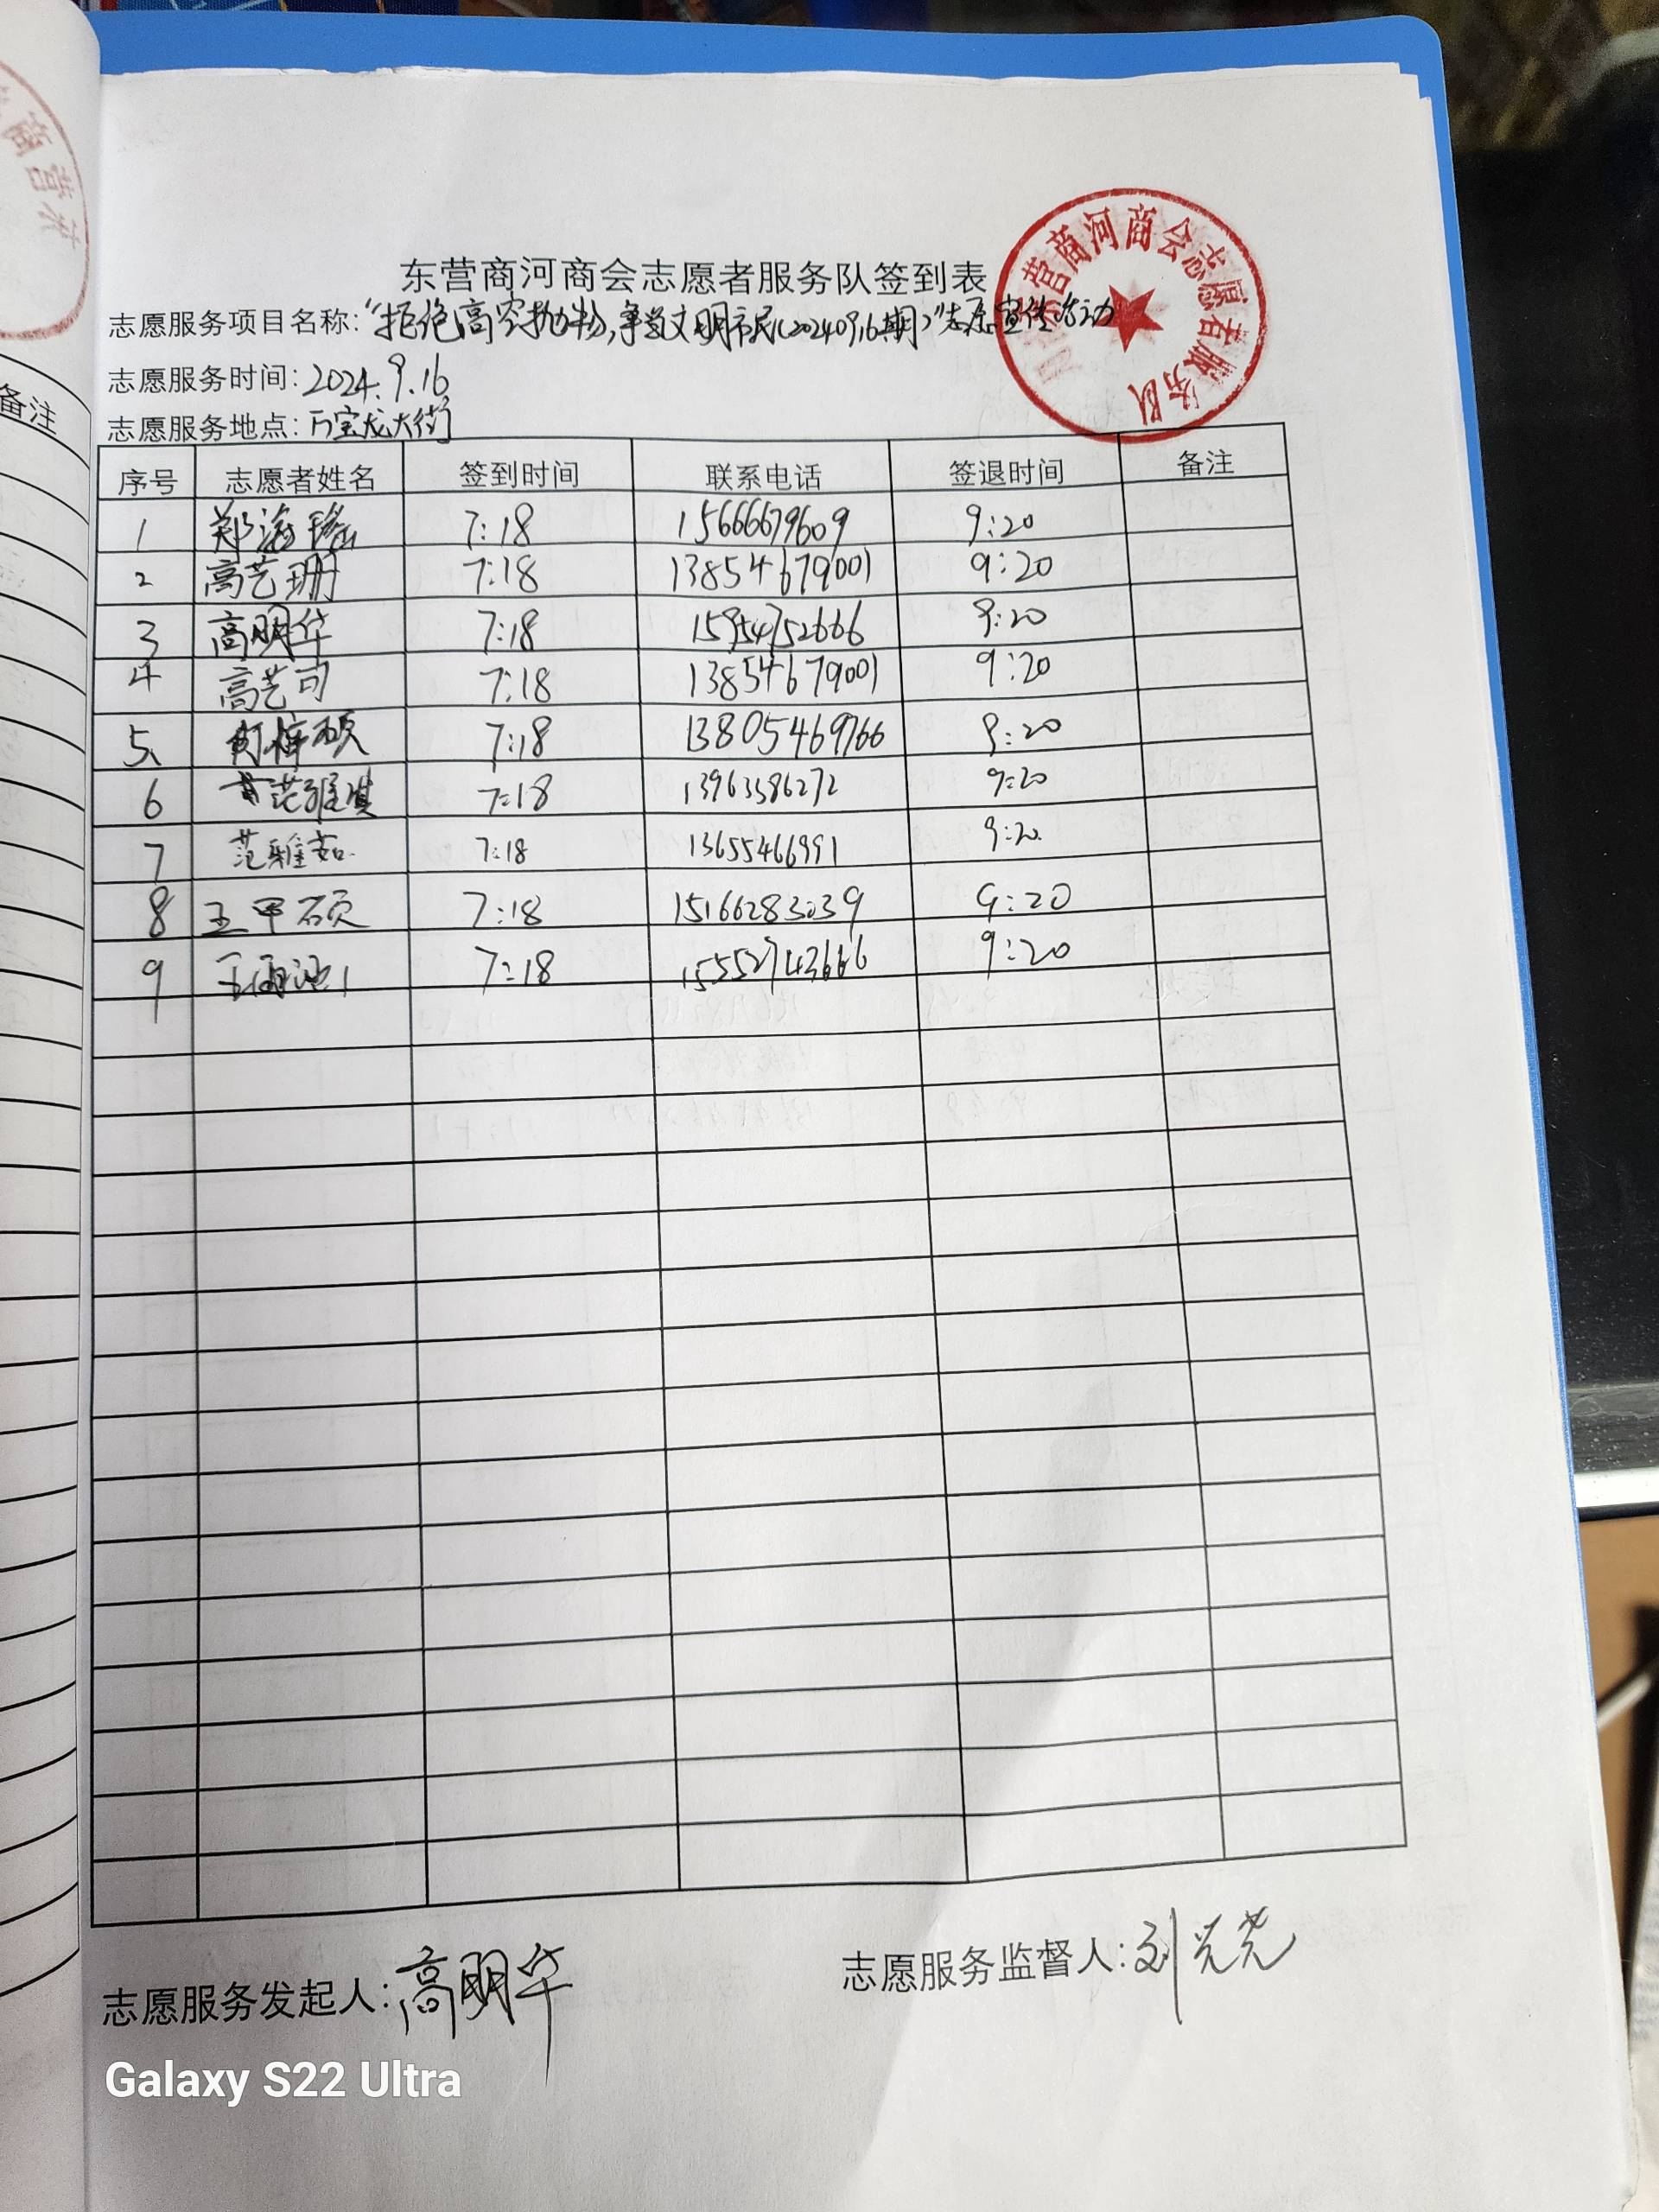 东营商河商会志愿者服务队签到表
志愿服务项目名称:“拒绝高空抛物,争当文明市民(20240916期)”志愿宣传活动
志愿服务时间:2024.9.16
志愿服务地点:万宝龙大街
序号 志愿者姓名 签到时间 联系电话 签退时间 备注
1 郑海瑶 7:18 15666679609 9:20
2 高艺珊 7:18 13854679001 9:20
3 高明华 7:18 15954752666 9:20
4 高艺可 7:18 13854679001 9:20
5 7:18 13805469766 9:20
6 7:18 13963386272 9:20
7 范雅茹 7:18 13655466991 9:20
8 王甲硕 7:18 15166283039 9:20
9 7:18 15552743666 9:20
志愿服务发起人:高明华
志愿服务监督人:刘光尧
Galaxy S22 Ultra
营商河商会志愿者服务队
备注
商营东